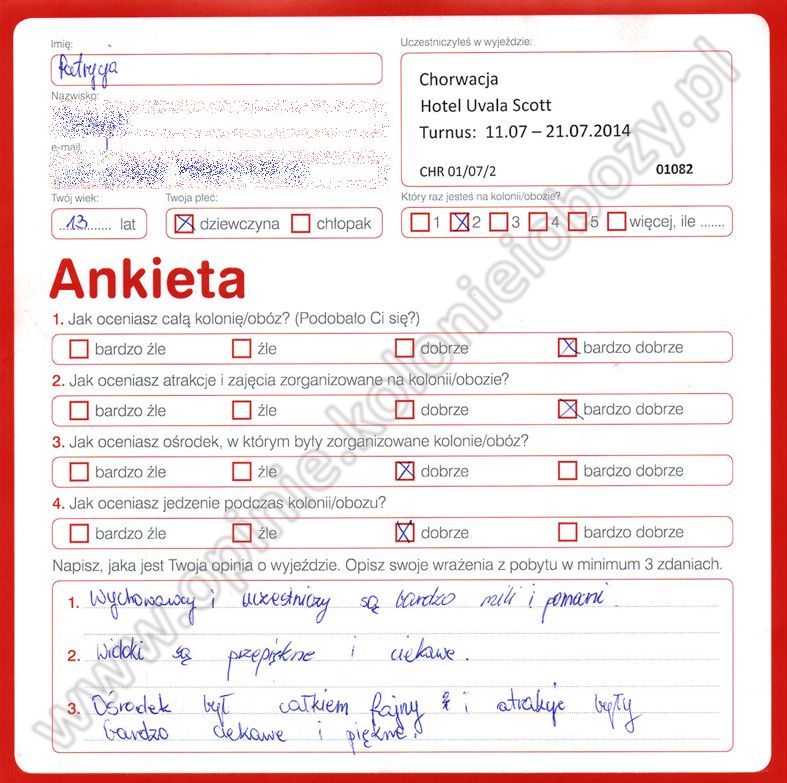 Imię:
Patrycja
Nazwisko:
e-mail:
Twój wiek:
13 lat
Twoja płeć:
dziewczyna chłopak
Uczestniczyłeś w wyjeździe:
Chorwacja
Hotel Uvala Scott
Turnus: 11.07 – 21.07.2014
CHR 01/07/2 01082
Który raz jesteś na kolonii/obozie?
1 2 3 4 5 więcej, ile .......
Ankieta
1. Jak oceniasz całą kolonię/obóz? (Podobało Ci się?)
bardzo źle źle dobrze bardzo dobrze
2. Jak oceniasz atrakcje i zajęcia zorganizowane na kolonii/obozie?
bardzo źle źle dobrze bardzo dobrze
3. Jak oceniasz ośrodek, w którym były zorganizowane kolonie/obóz?
bardzo źle źle dobrze bardzo dobrze
4. Jak oceniasz jedzenie podczas kolonii/obozu?
bardzo źle źle dobrze bardzo dobrze
Napisz, jaka jest Twoja opinia o wyjeździe. Opisz swoje wrażenia z pobytu w minimum 3 zdaniach.
1. Wychowawcy i uczestniczy są bardzo mili i pomocni.
2. Widoki są przepiękne i ciekawe.
3. Ośrodek był całkiem fajny i atrakcje były
bardzo ciekawe i piękne.
www.opinie.kolonieiobozy.pl